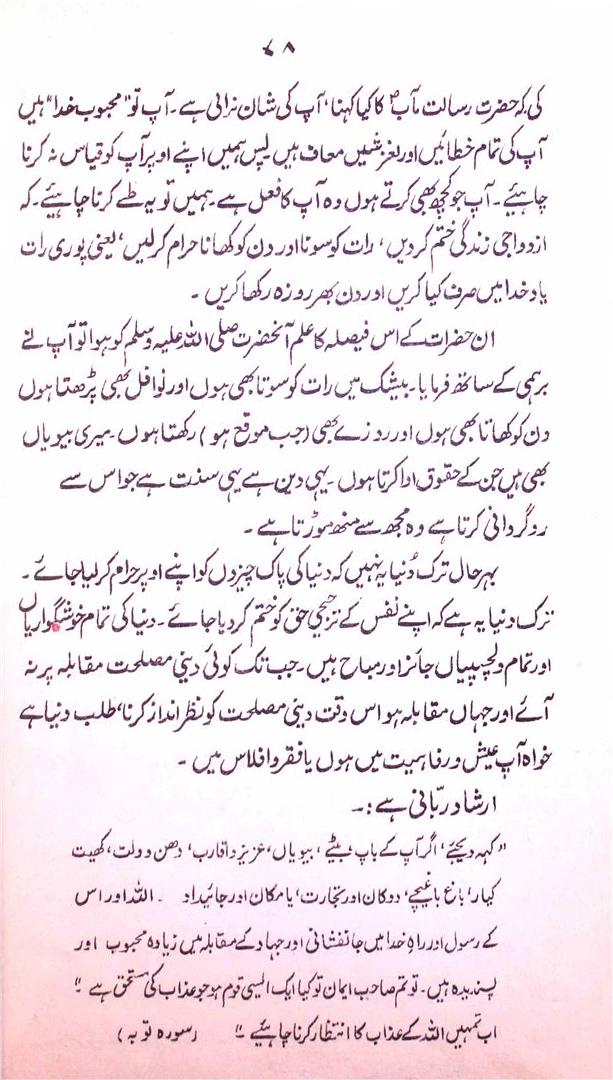 ۷۸
کی کہ حضرت رسالت مآبؐ کا کیا کہنا، آپ کی شان نرالی ہے۔ آپ تو "محبوب خدا" ہیں
آپ کی تمام خطائیں اور لغزشیں معاف ہیں پس ہمیں اپنے اوپر آپ کو قیاس نہ کرنا
چاہئیے۔ آپ جو کچھ بھی کرتے ہوں وہ آپ کا فعل ہے۔ ہمیں تو یہ طے کرنا چاہئیے۔ کہ
ازدواجی زندگی ختم کردیں، رات کو سونا اور دن کو کھانا حرام کرلیں، یعنی پوری رات
یاد خدا میں صرف کیا کریں اور دن بھر روزہ رکھا کریں ۔
ان حضرات کے اس فیصلہ کا علم آنحضرت صلی اللہ علیہ وسلم کو ہوا تو آپ نے
برہمی کے ساتھ فرمایا۔ بیشک میں رات کو سوتا بھی ہوں اور نوافل بھی پڑھتا ہوں
دن کو کھاتا بھی ہوں اور روزے بھی (جب موقع ہو) رکھتا ہوں۔ میری بیویاں
بھی ہیں جن کے حقوق ادا کرتا ہوں ۔ یہی دین ہے یہی سنت ہے جو اس سے
روگردانی کرتا ہے وہ مجھ سے منھ موڑتا ہے ۔
بہر حال ترک دُنیا یہ نہیں کہ دنیا کی پاک چیزوں کو اپنے اوپر حرام کرلیا جائے ۔
ترک دنیا یہ ہے کہ اپنے نفس کے ترجیحی حق کو ختم کردیا جائے ۔ دنیا کی تمام خوشگواریاں
اور تمام دلچسپیاں جائز اور مباح ہیں۔ جب تک کوئی دینی مصلحت مقابلہ پر نہ
آئے اور جہاں مقابلہ ہو اس وقت دینی مصلحت کو نظر انداز کرنا، طلب دنیا ہے
خواہ آپ عیش و رفاہیت میں ہوں یا فقر و افلاس میں ۔
ارشاد ربّانی ہے :۔
"کہہ دیجئے، اگر آپ کے باپ، بیٹے، بیویاں، عزیز و اقارب، دھن دولت، کھیت
کیار، باغ باغیچے، دوکان اور تجارت، یا مکان اور جائیداد ۔ اللہ اور اس
کے رسول اور راہِ خدا میں جانفشانی اور جہاد کے مقابلہ میں زیادہ محبوب اور
پسندیدہ ہیں۔ تو تم صاحب ایمان تو کیا ایک ایسی قوم ہو جو عذاب کی مستحق ہے ۔"
اب تمہیں اللہ کے عذاب کا انتظار کرنا چاہئیے ۔" (سورہ توبہ)